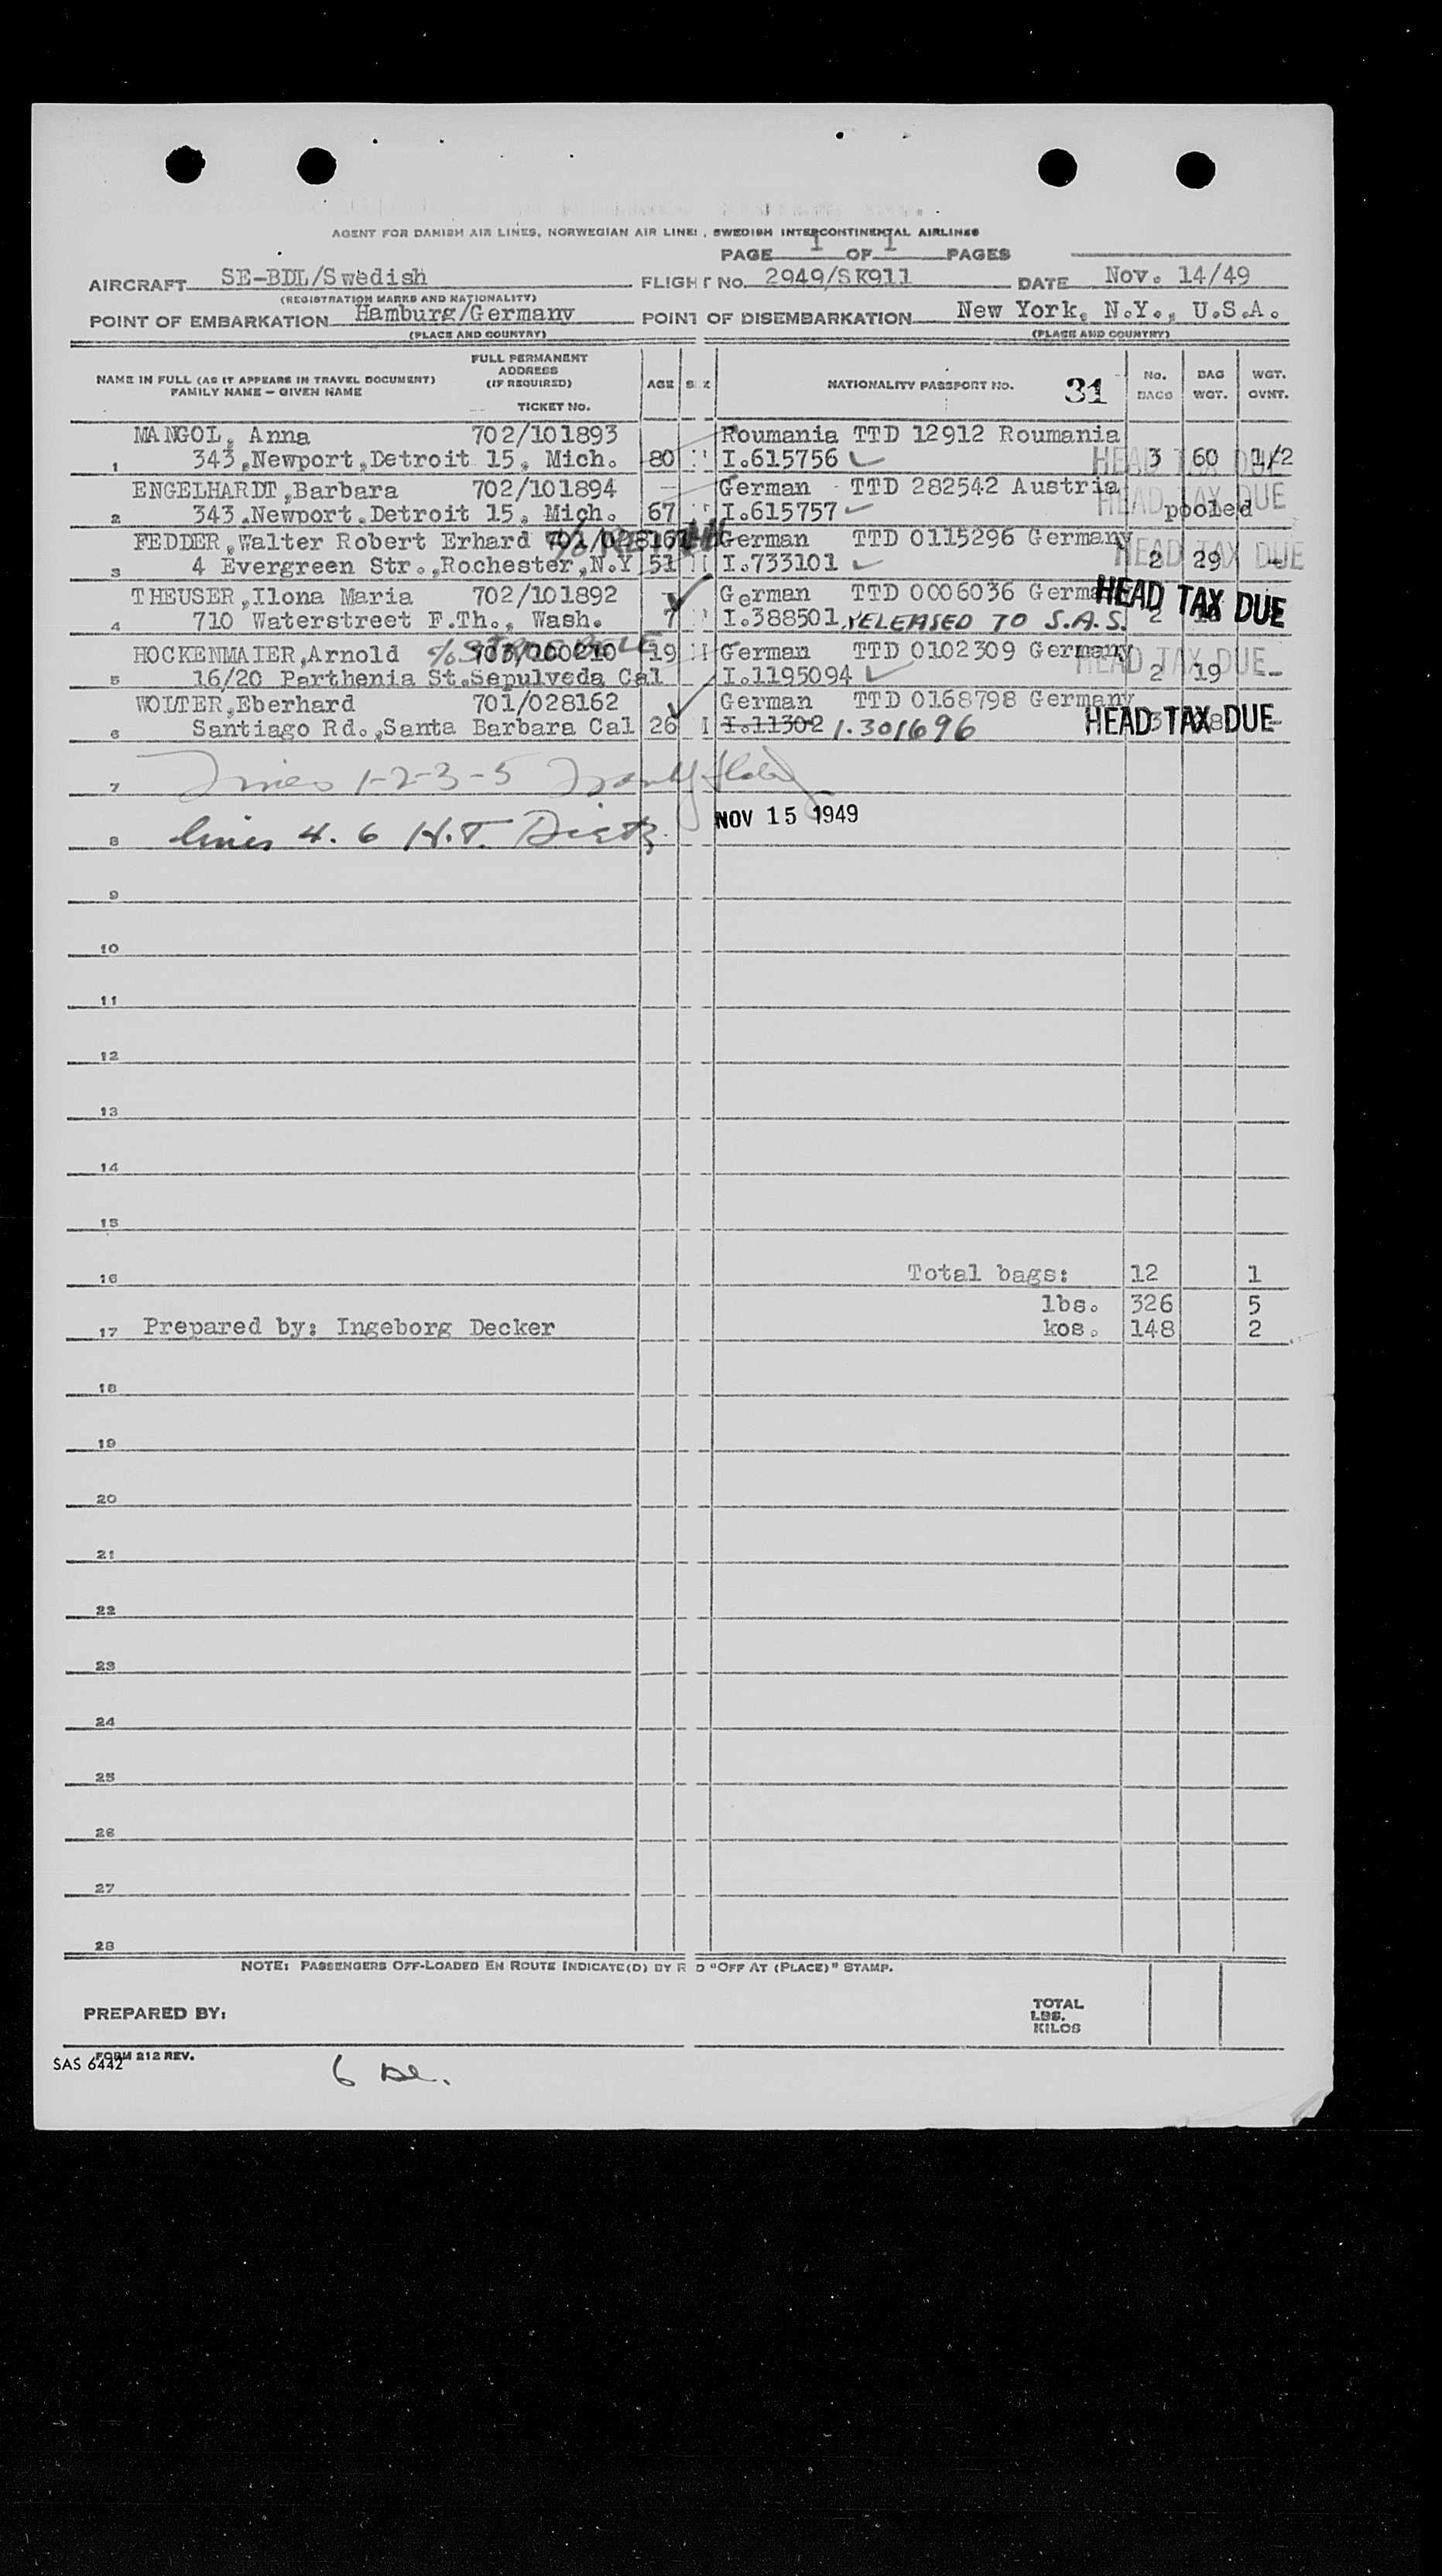 AGENT FOR DANISH AIR LINES, NORWEGIAN AIR LINES, SWEDISH INTERCONTINENTAL AIRLINES
PAGE 1 OF 1 PAGES
AIRCRAFT SE-BDL/Swedish FLIGHT NO. 2949/SK911 DATE Nov. 14/49
(REGISTRATION MARKS AND NATIONALITY)
POINT OF EMBARKATION Hamburg/Germany POINT OF DISEMBARKATION New York, N.Y., U.S.A.
(PLACE AND COUNTRY) (PLACE AND COUNTRY)
NAME IN FULL (AS IT APPEARS IN TRAVEL DOCUMENT) FAMILY NAME – GIVEN NAME FULL PERMANENT ADDRESS (IF REQUIRED) TICKET NO. AGE SEX NATIONALITY PASSPORT NO. 31 NO. BAGS BAG WGT. WGT. OVNT.
MANGOL, Anna 702/101893 Roumania TTD 12912 Roumania
1 343,Newport,Detroit 15, Mich. 80 I.615756 3 60 1/2 HEAD TAX DUE
ENGELHARDT,Barbara 702/101894 German - TTD 282542 Austria HEAD TAX DUE
2 343.Newport.Detroit 15, Mich. 67 I.615757 pooled
FEDDER,Walter Robert Erhard German TTD 0115296 Germany HEAD TAX DUE
3 4 Evergreen Str.,Rochester,N.Y 51 I.733101 2 29 -
THEUSER,Ilona Maria 702/101892 German TTD 0006036 Germany HEAD TAX DUE
4 710 Waterstreet F.Th., Wash. 7 I.388501 RELEASED TO S.A.S. 2
HOCKENMAIER,Arnold 19 German TTD 0102309 Germany HEAD TAX DUE
5 16/20 Parthenia St.Sepulveda Cal I.1195094 2 19 --
WOLTER,Eberhard 701/028162 German TTD 0168798 Germany
6 Santiago Rd.,Santa Barbara Cal 26 I.11302 1.301696 HEAD TAX DUE 3
7 Lines 1-2-3-5
8 lines 4. 6 H.T. Dietz NOV 15 1949
9
10
11
12
13
14
15
16 Total bags: 12 1
lbs. 326 5
17 Prepared by: Ingeborg Decker kos. 148 2
18
19
20
21
22
23
24
25
26
27
28
NOTE: PASSENGERS OFF-LOADED EN ROUTE INDICATE(D) BY RED "OFF AT (PLACE)" STAMP.
PREPARED BY: TOTAL LBS. KILOS
FORM 212 REV.
SAS 6442
6